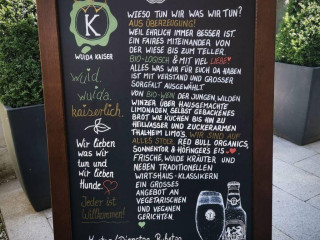 K
WUIDA KAISER
wuid.
wuida.
kaiserlich.
Wir lieben
was wir
tun und
wir lieben
Hunde.
Jeder ist
Willkommen!
WIESO TUN WIR WAS WIR TUN?
AUS ÜBERZEUGUNG!
WEIL EHRLICH IMMER BESSER IST.
EIN FAIRES MITEINANDER VON
DER WIESE BIS ZUM TELLER.
BIO-LOGISCH & MIT VIEL LIEBE!
ALLES WAS WIR FÜR EUCH DA HABEN
IST MIT VERSTAND UND GROSSER
SORGFALT AUSGEWÄHLT
VON BIO-WEIN DER JUNGEN, WILDEN
WINZER ÜBER HAUSGEMACHTE
LIMONADEN, SELBST GEBACKENES
BROT WIE KUCHEN BIS HIN ZU
HEILWASSER UND ZUCKERARMEN
THALHEIM LIMOS. WIR SIND AUF
ALLES STOLZ. RED BULL ORGANICS,
SONNENTOR & HÖFINGERS EIS
FRISCHE, WUIDE KRÄUTER UND
NEBEN TRADITIONELLEN
WIRTSHAUS-KLASSIKERN
EIN GROSSES
ANGEBOT AN
VEGETARISCHEN
UND VEGANEN
GERICHTEN.